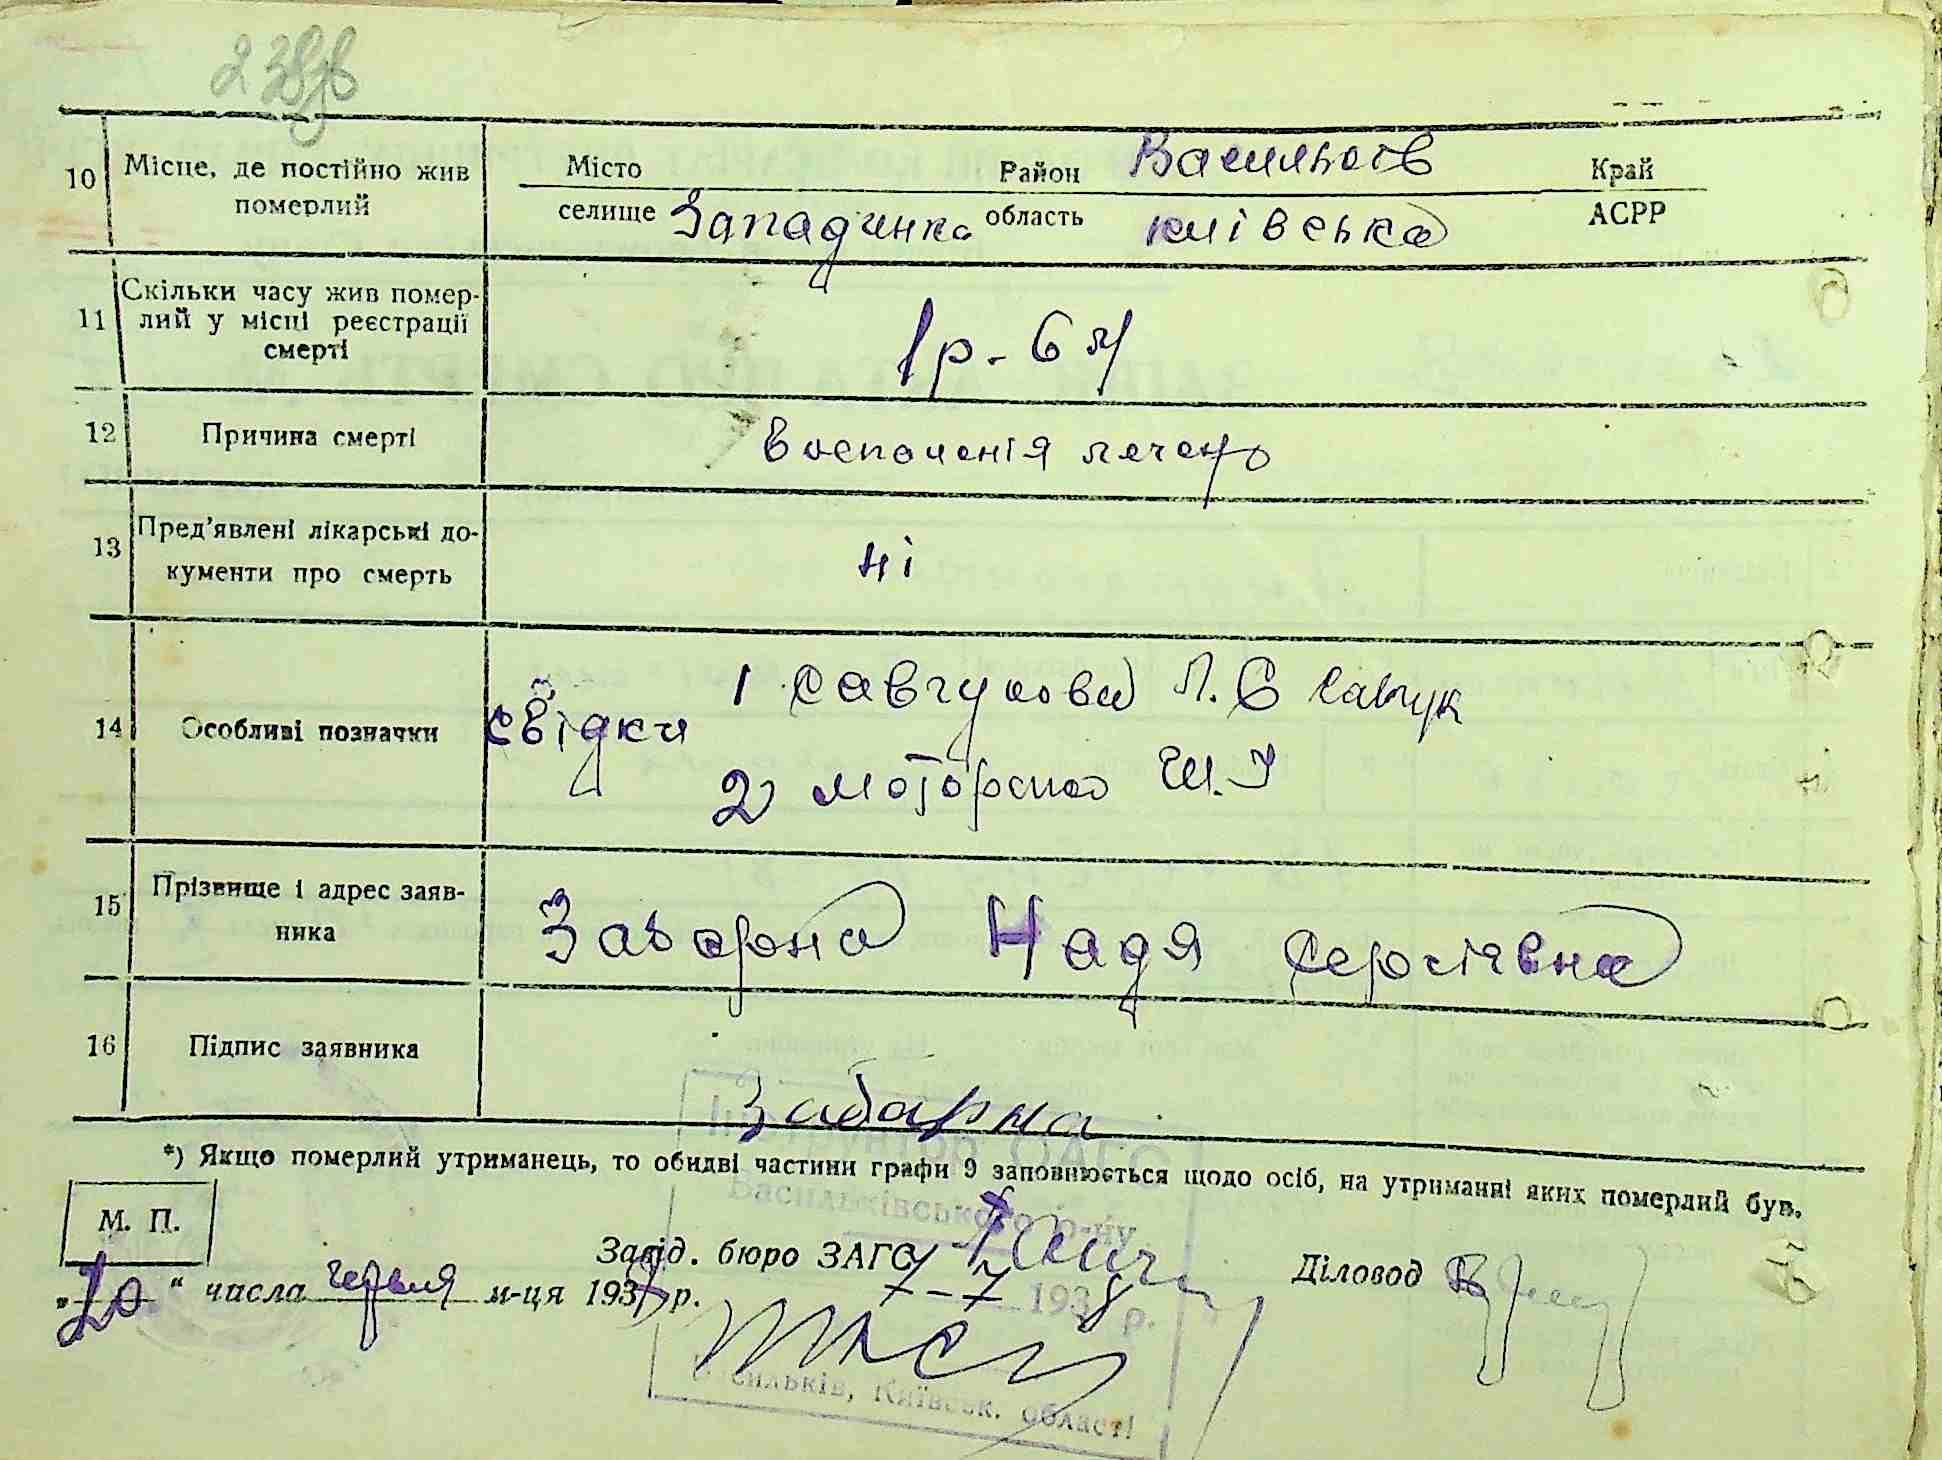 10 Місце, де постійно жив померлий
Місто Район Васильків Край
селище Западинка область київська АСРР
11 Скільки часу жив помер-
лий у місці реєстрації
смерті
1р - 6 м
12 Причина смерті
воспаленія печені
13 Пред'явлені лікарські до-
кументи про смерть
ні
14 Особливі позначки
свідки 1 Савчукова Л. С Савчук
2 моторна Ш. І
15 Прізвище і адрес заяв-
ника
Забарна Надя Сергіівна
16 Підпис заявника
Забарна
*) Якщо померлий утриманець, то обидві частини графи 9 заповнюється щодо осіб, на утриманні яких померлий був.
М. П.
Інспектура ОАГС
Васильківського р-ну
Завід. бюро ЗАГС
Діловод
„20" числа червня м-ця 193 р.
7-7 1938 р.
Васильків, Київськ. області